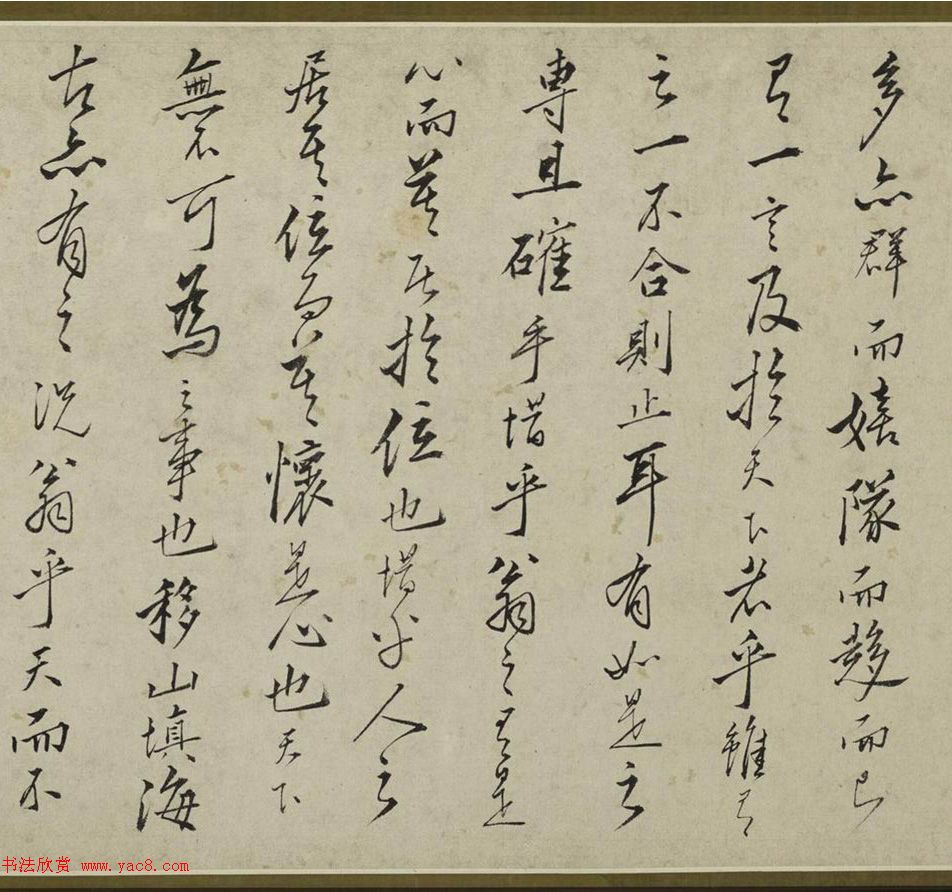 多亦群而嬉隊而趍而已
有一言及於天下者乎雖有
之一不合則止耳有如是之
專且確乎惜乎翁之有是
心而莫居於位也惜乎人之
居其位而莫懷是心也天下
無不可為之事也移山填海
古亦有之況翁乎天而不
书法欣赏 www.yac8.com